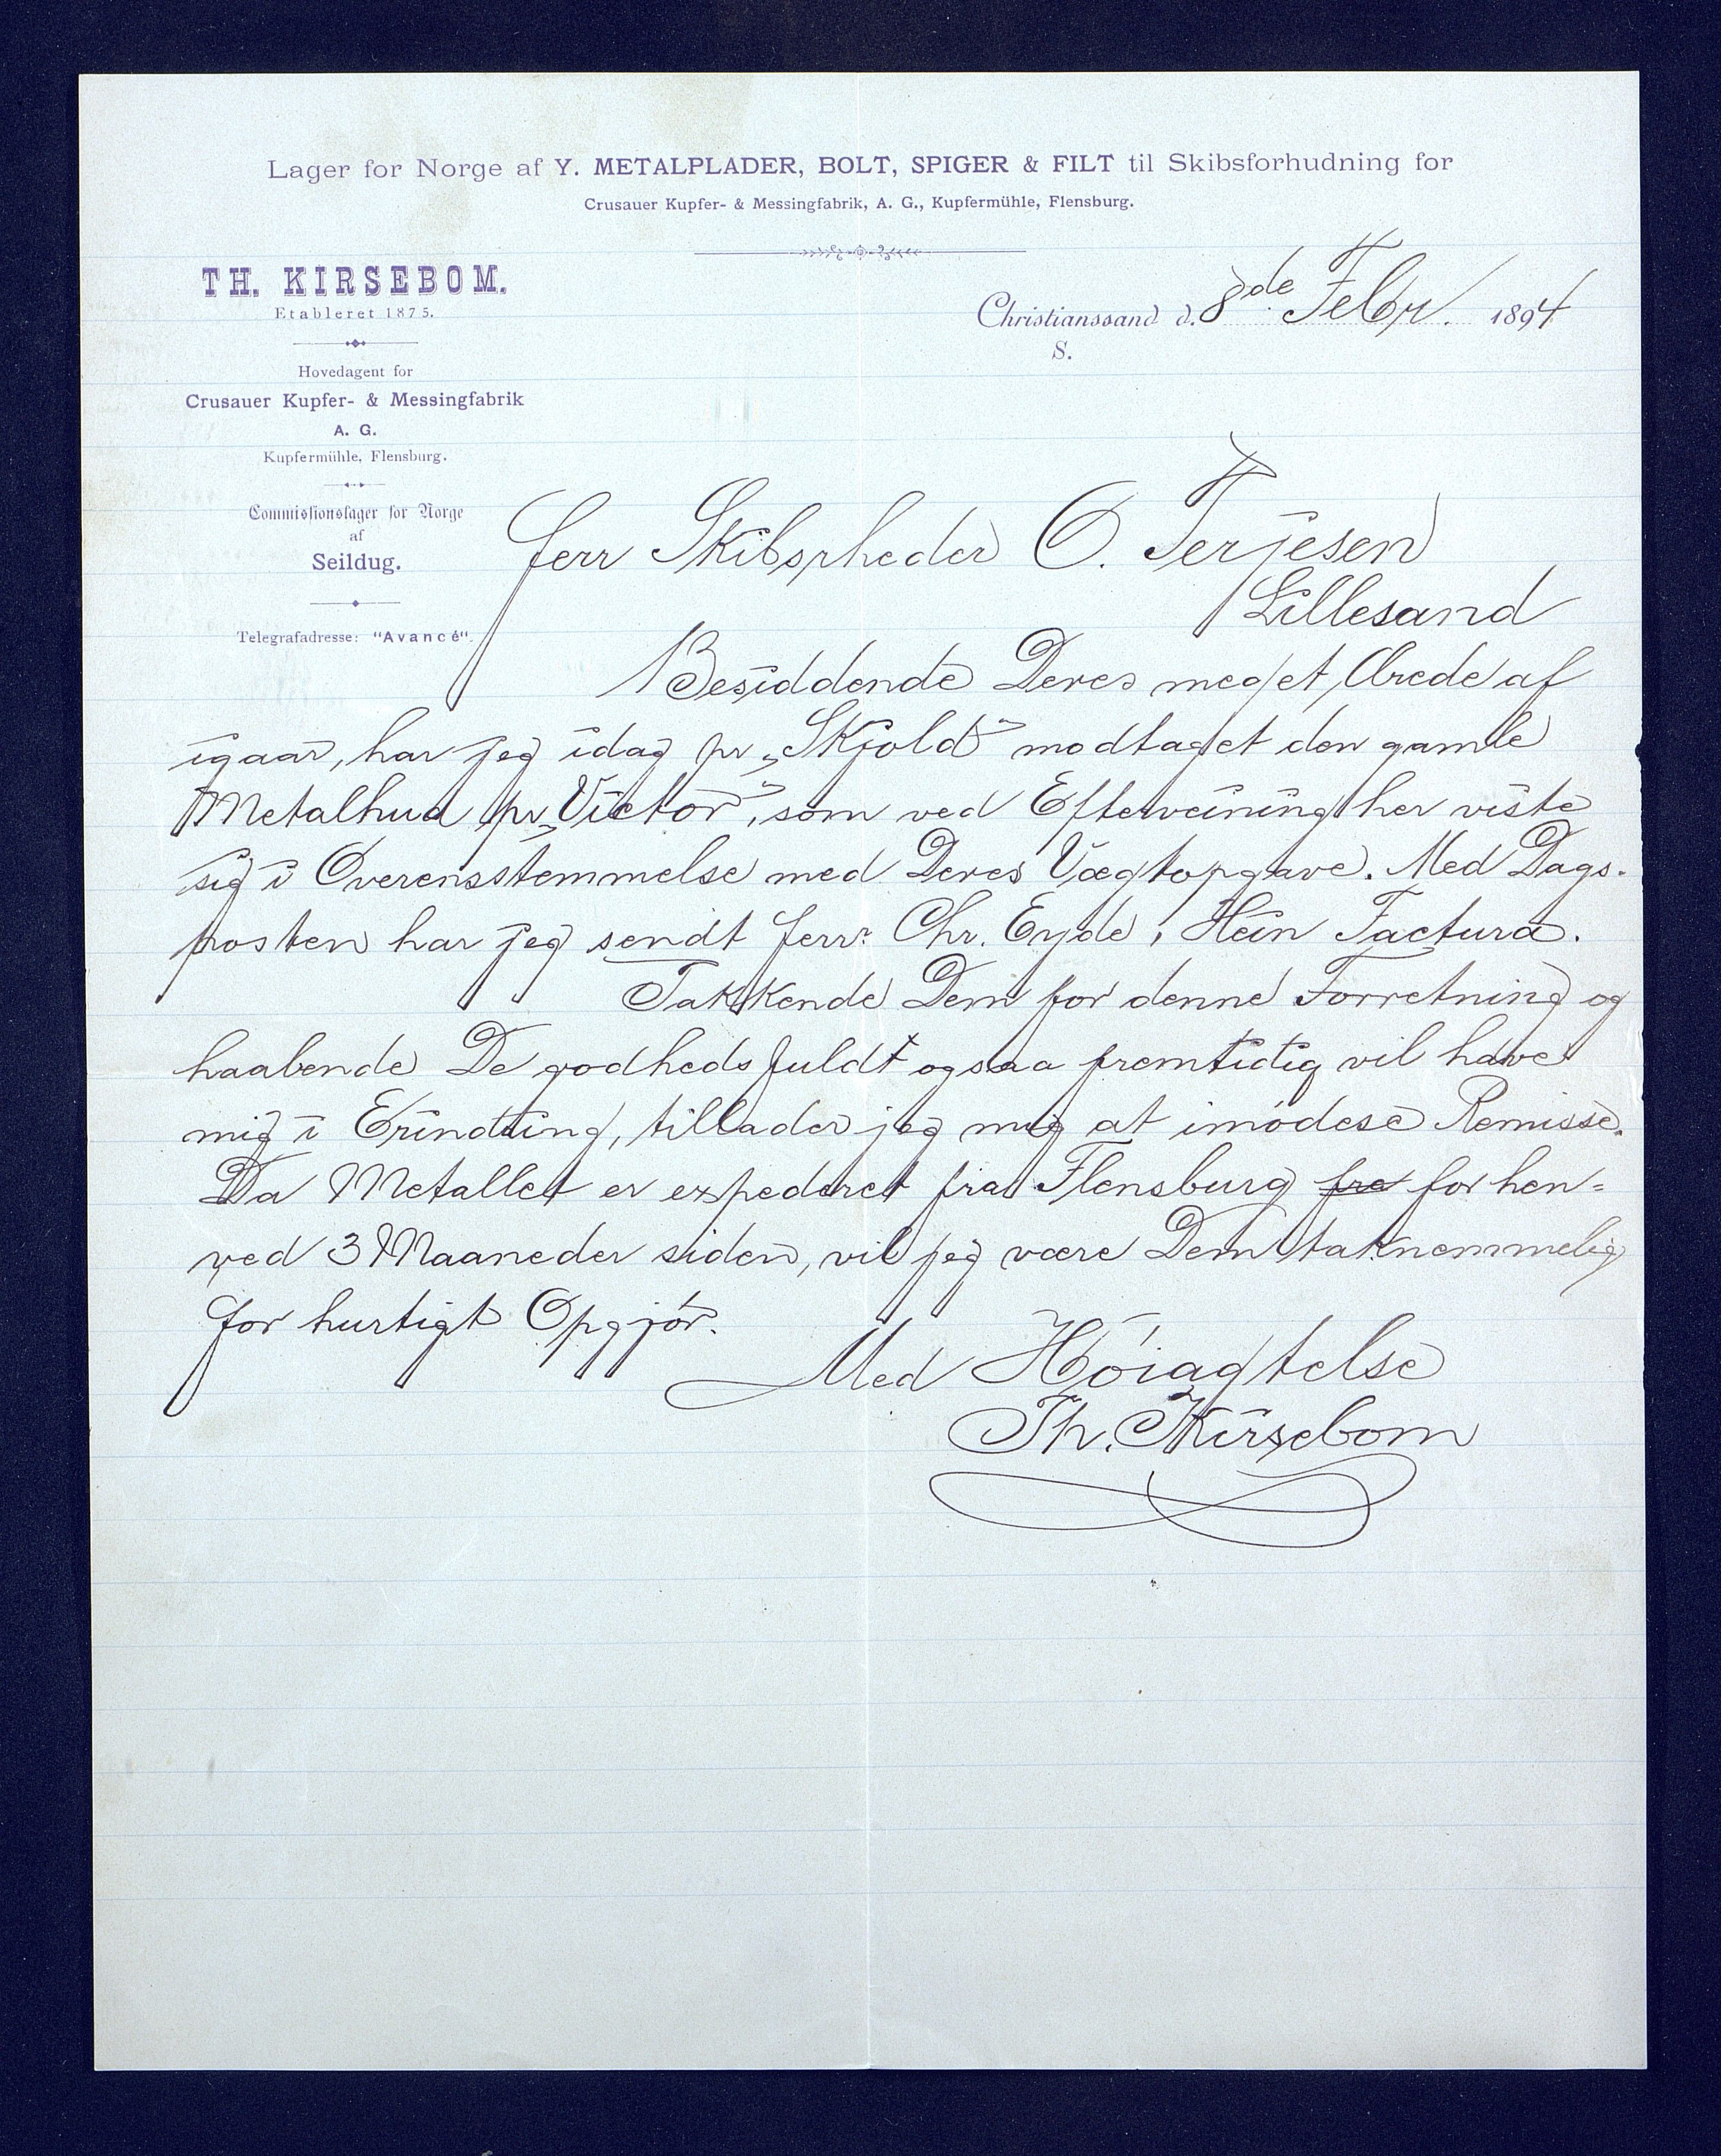 Lager for Norge af Y. METALPLADER, BOLT, SPIGER & FILT til Skibsforhudning for
Crusauer Kupfer- & Messingfabrik, A. G., Kupfermühle, Flensburg.
TH. KIRSEBOM.
Etableret 1875.
Hovedagent for
Crusauer Kupfer- & Messingfabrik
A. G.
Kupfermühle, Flensburg.
Commissionslager for Norge
af
Seildug.
Telegrafadresse: "Avancé".
Christianssand d. 8de Febr. 1894
S.
Herr Skibsrheder O. Terjesen
Lillesand
Besiddende Deres meget Ærede af
igaar, har jeg idag pr „Skjold" modtaget den gamle
Metalhud pr „Victor", som ved Efterveining her viste
sig i Overensstemmelse med Deres Vægtopgave. Med Dags-
posten har jeg sendt Herr Chr. Eyde, Factura.
Takkende Dem for denne Forretning og
haabende De godhedsfuldt ogsaa fremtidig vil have
mig i Erindring, tillader jeg mig at imødese Remisse.
Da Metallet er expederet fra Flensburg fra for hen=
ved 3 Maaneder siden, vil jeg være Dem taknemmelig
for hurtigt Opgjør.
Med Høiagtelse
Th. Kirsebom